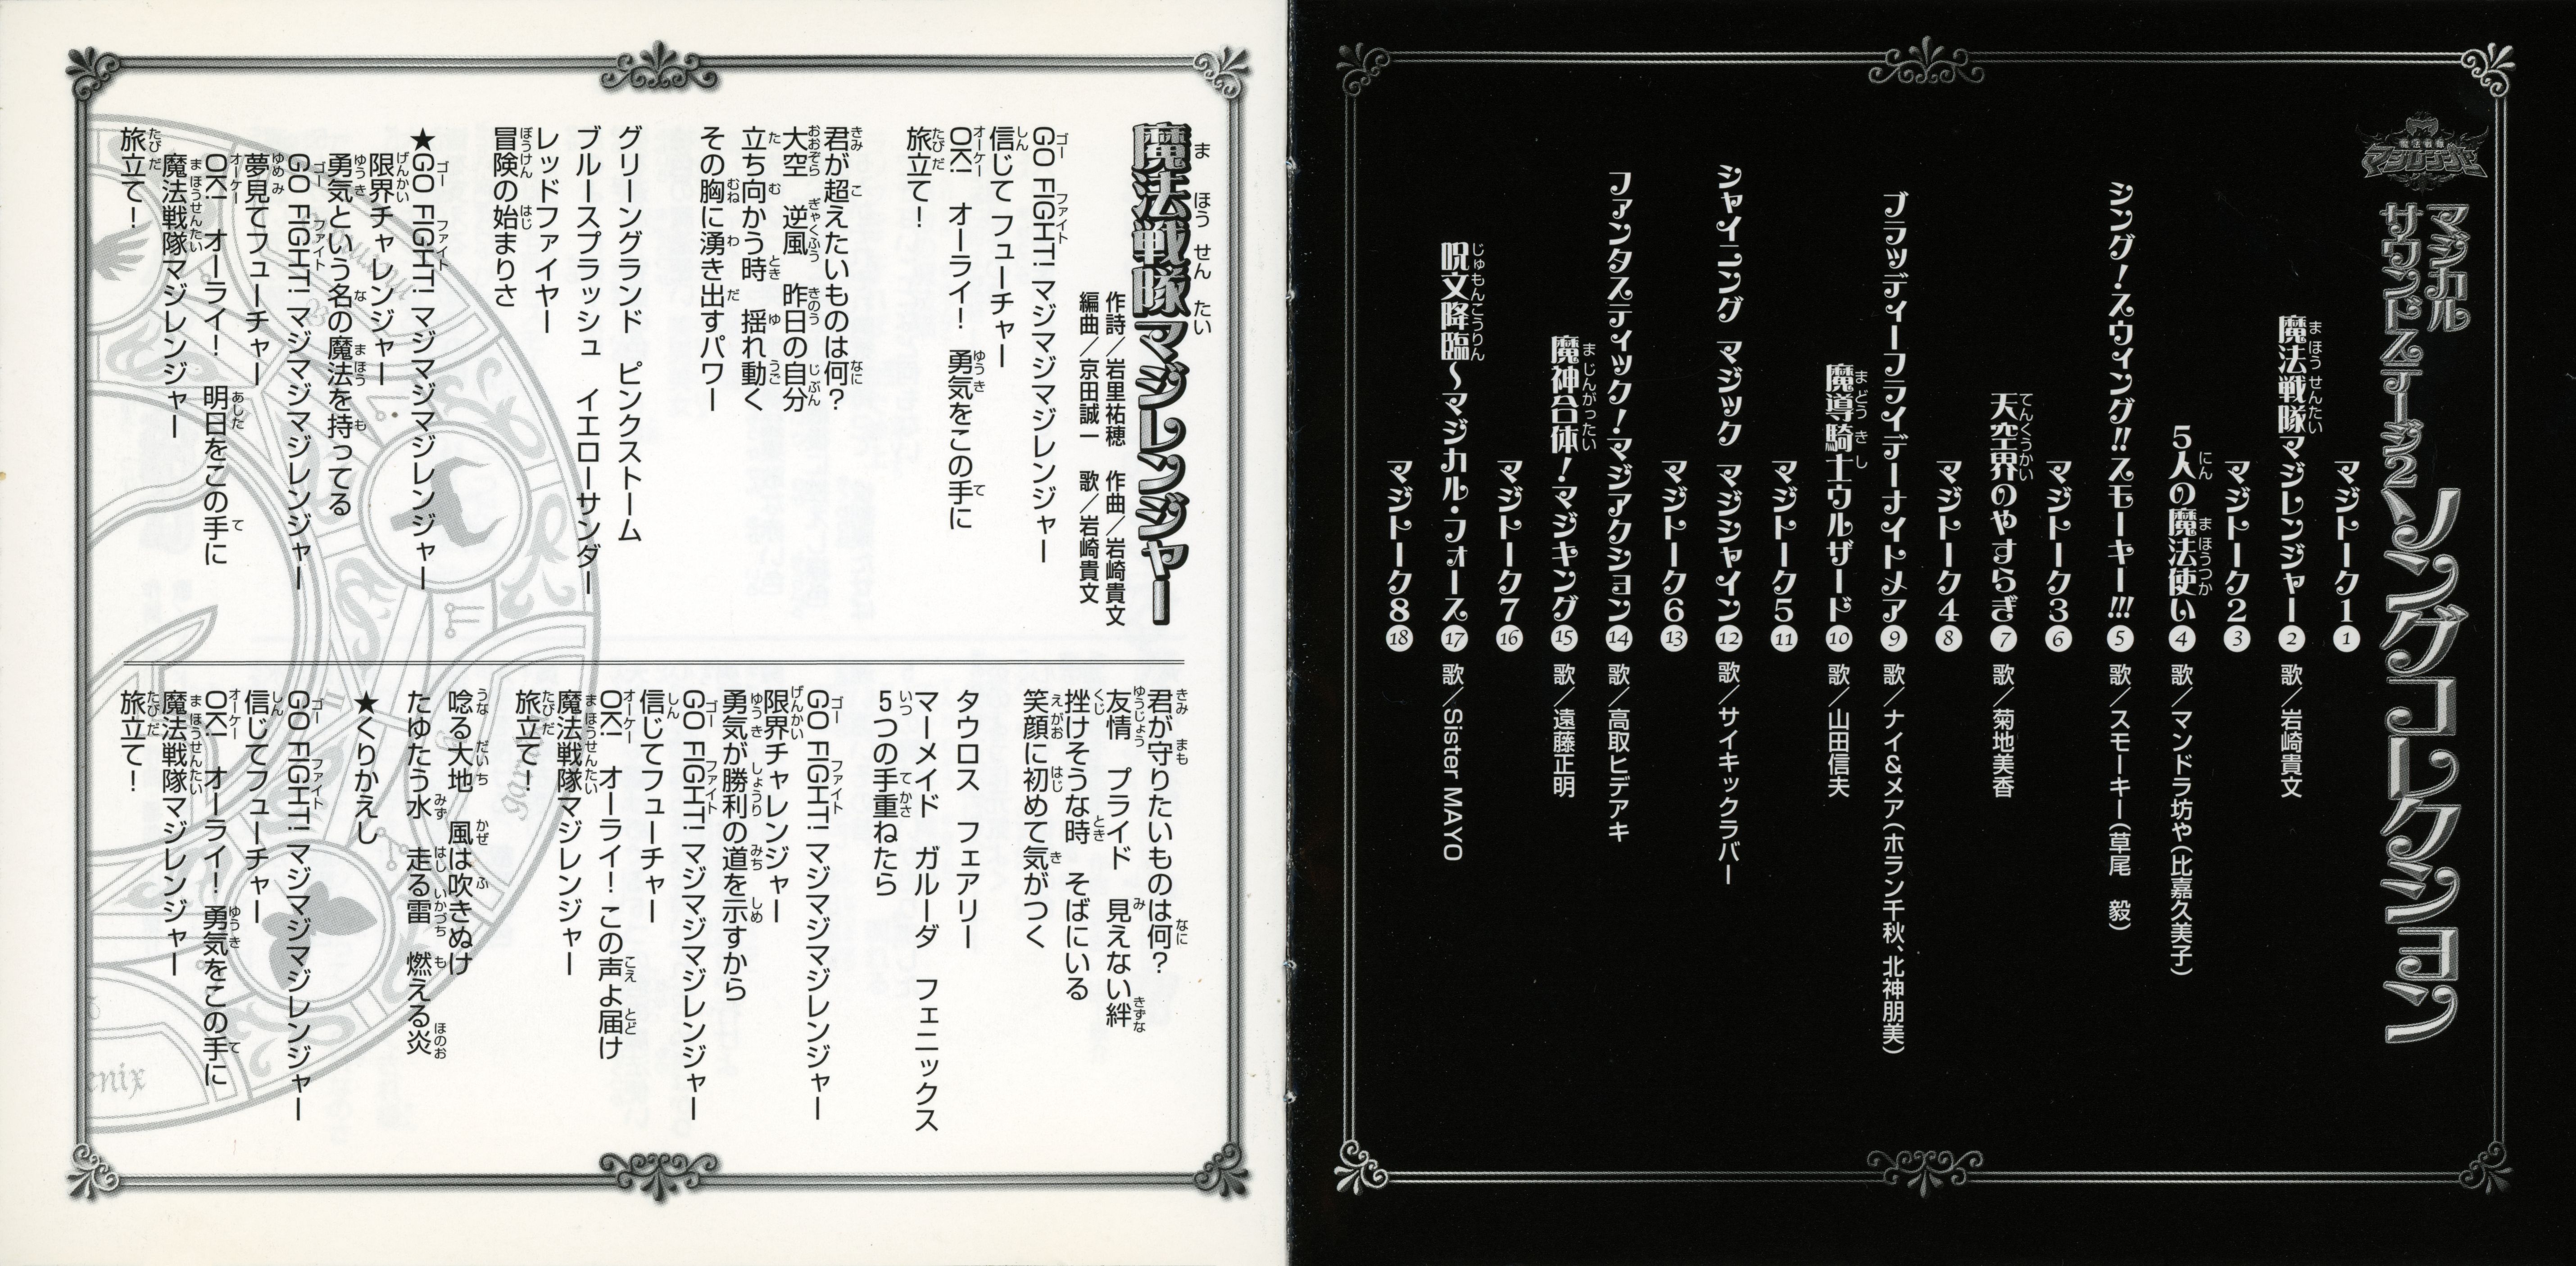 魔法戦隊
マジレンジャー
マジカル
サウンドステージ2
ソングコレクション
マジトーク1 1
魔法戦隊マジレンジャー 2 歌／岩崎貴文
マジトーク2 3
5人の魔法使い 4 歌／マンドラ坊や(比嘉久美子)
シング!スウィング!!スモーキー!!! 5 歌／スモーキー(草尾 毅)
マジトーク3 6
天空界のやすらぎ 7 歌／菊地美香
マジトーク4 8
ブラッディーフライデーナイトメア 9 歌／ナイ&メア(ホラン千秋、北神朋美)
魔導騎士ウルザード 10 歌／山田信夫
マジトーク5 11
シャイニング マジック マジシャイン 12 歌／サイキックラバー
マジトーク6 13
ファンタスティック!マジアクション 14 歌／高取ヒデアキ
魔神合体!マジキング 15 歌／遠藤正明
マジトーク7 16
呪文降臨〜マジカル・フォース 17 歌／Sister MAYO
マジトーク8 18
魔法戦隊マジレンジャー
作詩／岩里祐穂 作曲／岩崎貴文
編曲／京田誠一 歌／岩崎貴文
GO FIGHT! マジマジマジレンジャー
信じて フューチャー
OK! オーライ! 勇気をこの手に
旅立て!
君が超えたいものは何?
大空 逆風 昨日の自分
立ち向かう時 揺れ動く
その胸に湧き出すパワー
グリーングランド ピンクストーム
ブルースプラッシュ イエローサンダー
レッドファイヤー
冒険の始まりさ
★GO FIGHT! マジマジマジレンジャー
限界チャレンジャー
勇気という名の魔法を持ってる
GO FIGHT! マジマジマジレンジャー
夢見てフューチャー
OK! オーライ! 明日をこの手に
魔法戦隊マジレンジャー
旅立て!
君が守りたいものは何?
友情 プライド 見えない絆
挫けそうな時 そばにいる
笑顔に初めて気がつく
タウロス フェアリー
マーメイド ガルーダ フェニックス
5つの手重ねたら
GO FIGHT! マジマジマジレンジャー
限界チャレンジャー
勇気が勝利の道を示すから
GO FIGHT! マジマジマジレンジャー
信じてフューチャー
OK! オーライ! この声よ届け
魔法戦隊マジレンジャー
旅立て!
唸る大地 風は吹きぬけ
たゆたう水 走る雷 燃える炎
★くりかえし
GO FIGHT! マジマジマジレンジャー
信じてフューチャー
OK! オーライ! 勇気をこの手に
魔法戦隊マジレンジャー
旅立て!